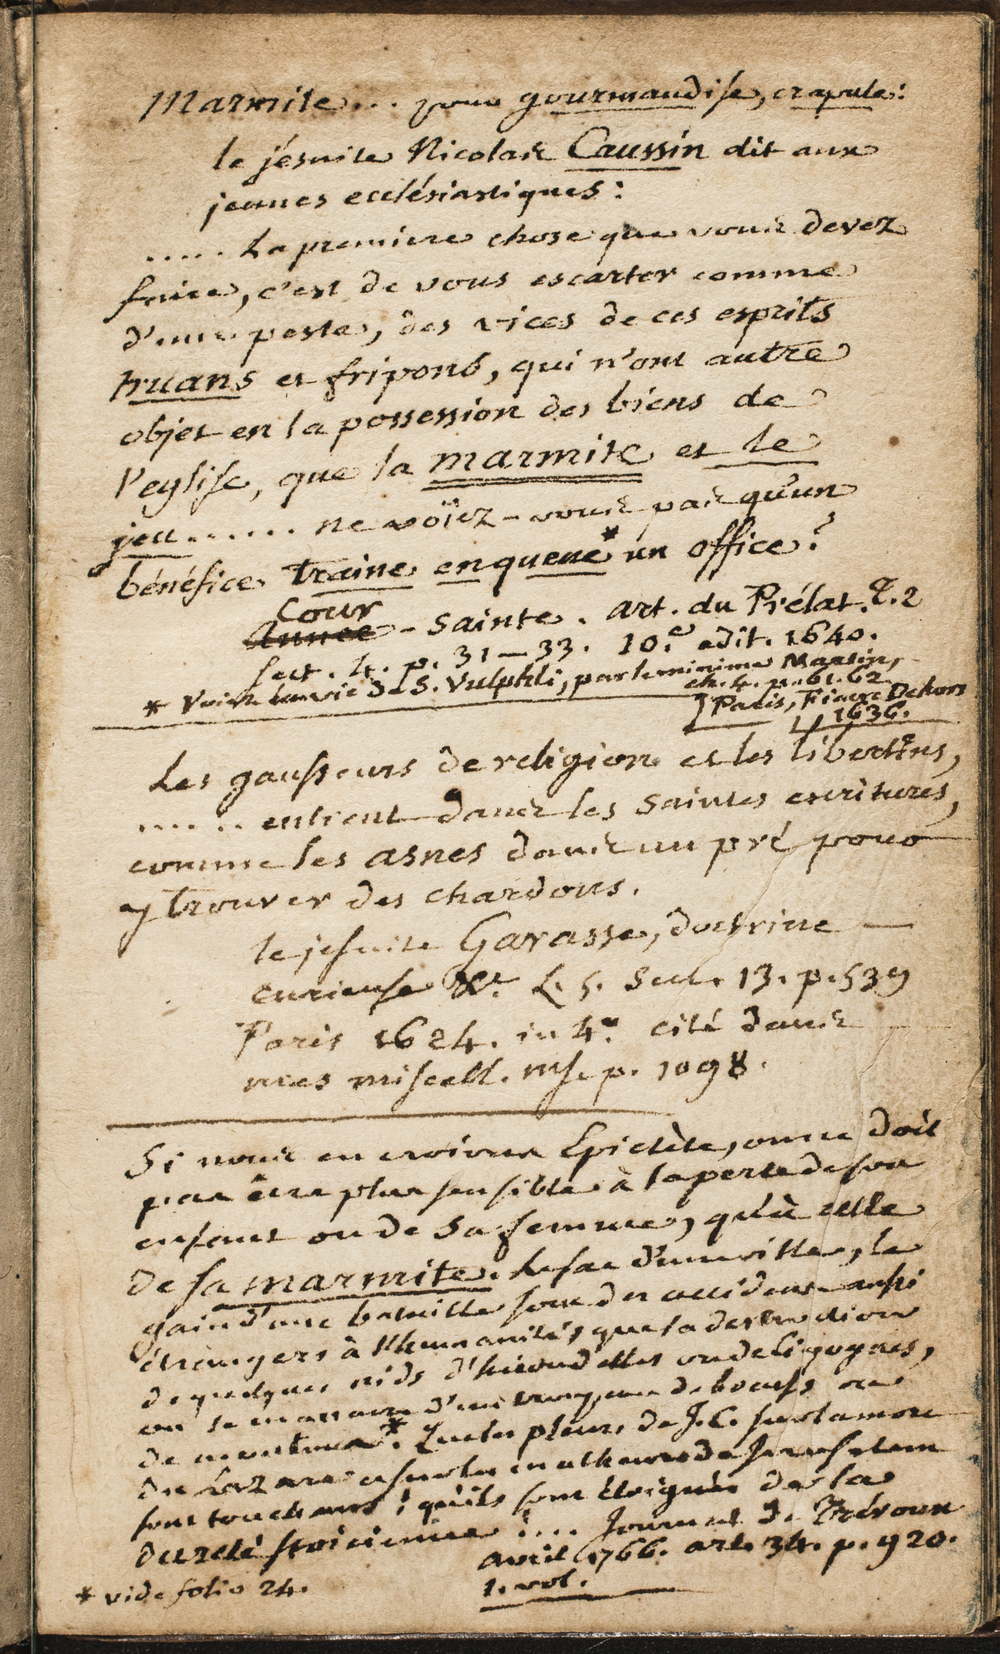 Marmite... pour gourmandise, crapule:
le jésuite Nicolas Caussin dit aux
jeunes ecclésiastiques:
..... La premiere chose que vous devez
faire, c'est de vous escarter comme
d'une peste, des vices de ces esprits
truans et fripons, qui n'ont autre
objet en la possession des biens de
l'eglise, que la marmite et le
jeu...... ne voïez-vous pas qu'un
bénéfice traine en queue* un office?
Cour
Année - sainte. art. du Prélat. T. 2
sect. 4. p. 31-33. 10.e edit. 1640.
* Voiez la vie de S. Vulphli, par le minime Martin,
ch. 4. p. 61. 62
Paris, Fiacre Dehors
1636.
Les gausseurs de religion et les libertins,
...... entrent dans les saintes escritures,
comme les asnes dans un pré pour
y trouver des chardons.
le jesuite Garasse, doctrine
curieuse &c. L. 5. Sect. 13. p. 539
Paris 1624. in 4.° cité dans
mes miscell. ms. p. 1098.
Si nous en croions Epictète, on ne doit
pas être plus sensible à la perte de son
enfant ou de sa femme, qu'à celle
de sa marmite. Le sac d'une ville, le
gain d'une bataille sont des accidens aussi
étrangers à l'humanité, que la destruction
de quelques nids d'hirondelles ou de cigognes,
ou le massacre d'un troupeau de boeufs ou
de moutons*. Que les pleurs de J. C. sur la mort
du Lazare et sur les malheurs de Jerusalem
sont touchans! qu'ils sont éloignés de la
dureté stoicienne!.... Journal de Trévoux
avril 1766. art. 34. p. 920.
1. vol.
* vide folio 24.